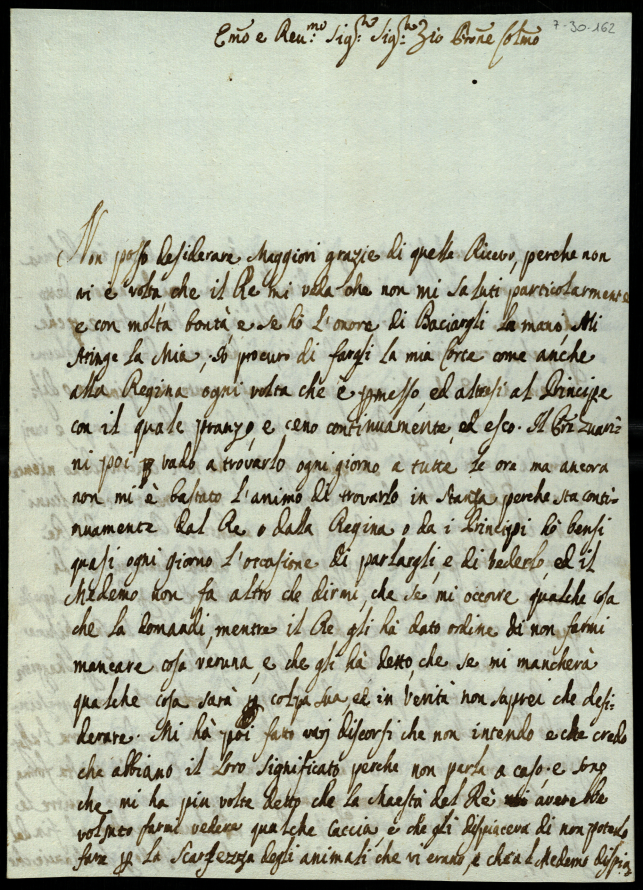 7-30-162
Em̃o e Reu.mo Sig.r Sig.r Zio Prõne Col̃mo
Non posso desiderare Maggiori grazie di quelle Riceuo, perche non
vi è volta che il Re mi veda che non mi saluti particolarmente
e con molta bontà e se hò l'onore di Baciargli la mano, Mi
stringe la Mia, Io procuro di fargli la mia Corte come anche
alla Regina ogni volta che è permesso, ed altresi al Principe
con il quale pranzo, e ceno continuamente, ed esco. Il Prẽ
ni poi vado a trovarlo ogni giorno a tutte le ore ma ancora
non mi è bastato l'animo di trovarlo in stanza perche sta conti-
nuamente dal Re o dalla Regina o da i Principi hò bensi
quasi ogni giorno l'occasione di parlargli, e di vederlo, ed il
Medemo non fa altro che dirmi, che se mi occorre qualche cosa
che la domandi, mentre il Re gli hà dato ordine di non farmi
mancare cosa veruna, e che gli hà detto, che se mi mancherà
qualche cosa sarà p colpa sua ed in verità non saprei che desi-
derare. Mi hà poi fatto varj discorsi che non intendo e che credo
che abbiano il loro significato perche non parla a caso, e sono
che mi ha piu volte detto che la Maestà del Rè averebbe
voluto farmi vedere qualche Caccia e che gli dispiaceva di non poterlo
fare p la scarsezza degli animali che vi erano, e che al Medemo dispia